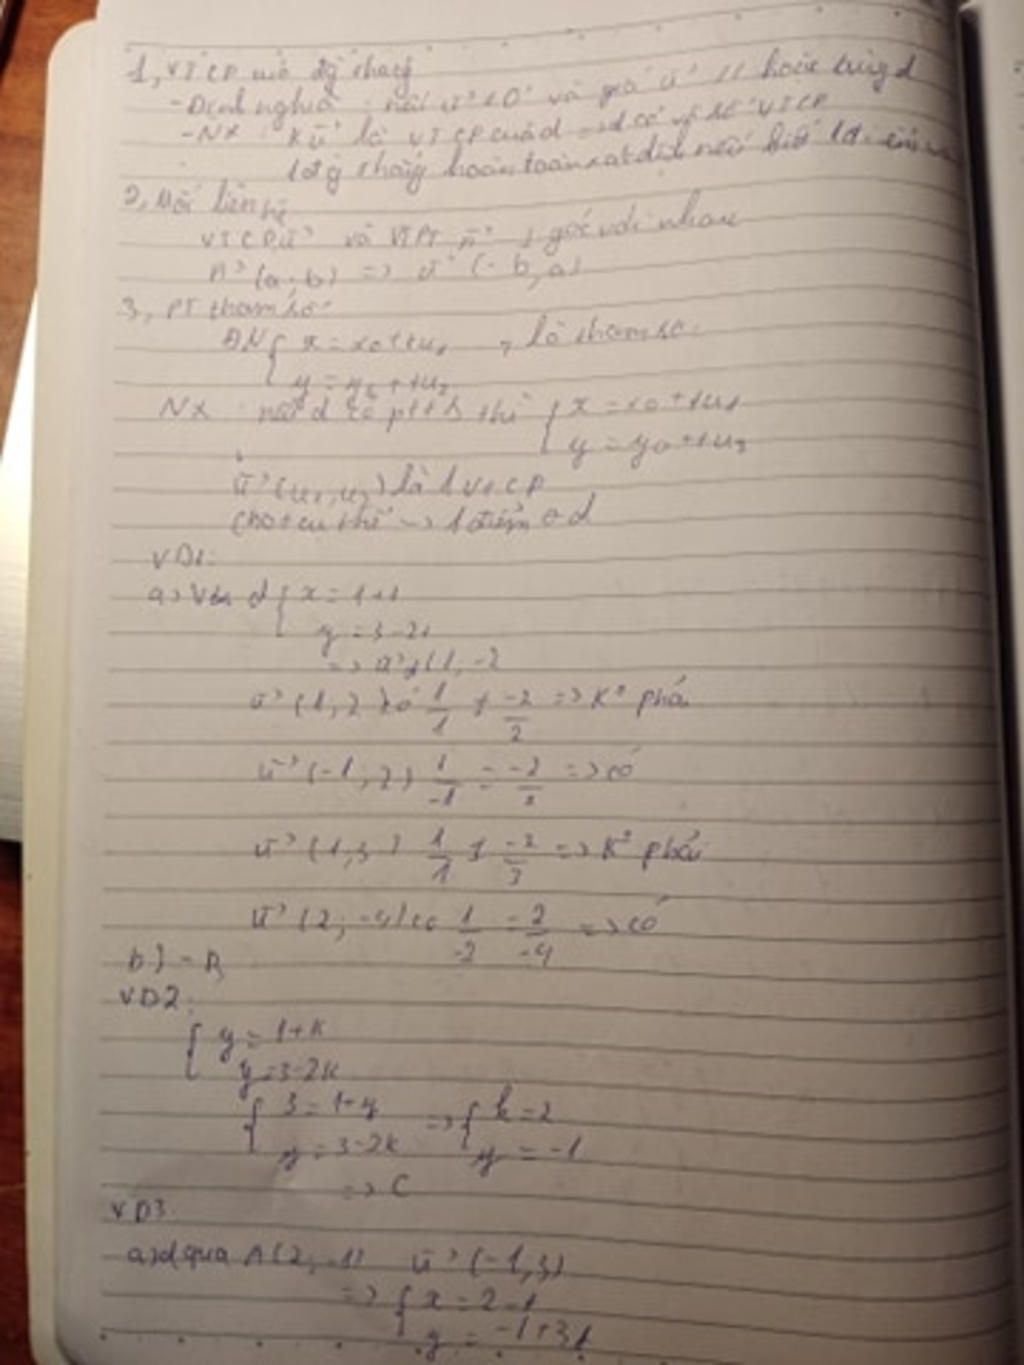 1, VTCP của đg thẳng
- Định nghĩa : nếu u→ ≠ 0→ và giá u→ // hoặc trùng d
- NX : Ku→ là VTCP của d => d có vô số VTCP
1 đg thẳng hoàn toàn xat địh nếu biết 1 đ
2, Mối liên hệ
VTCP u→ và VTPT n→ ⊥ góc với nhau
n→ (a; b) => u→ (-b, a)
3, PT tham số
ĐN { x = x0 + tu1 , là tham số
y = y0 + tu2
NX : nếu d có ptts thì { x = x0 + tu1
y = y0 + tu2
u→ (u1, u2) là 1 VTCP
Cho t cụ thể → 1 điểm ∈ d
VD1:
a) d { x = 1+t
y = 3-2t
=> u→d (1, -2
u→ (1, 2) có 1/1 ≠ -2/2 => K° phải
u→ (-1; 2) 1/-1 = -2/2 => có
u→ (1, 3) 1/1 ≠ -2/3 => K° phải
u→ (2; -4) có 1/-2 = 2/-4 => có
b) - B
VD2:
{ y = 1+k
y = 3-2k
{ 3 = 1+y => { k = 2
y = 3-2k y = -1
=> C
VD3
a) d qua A(2; -1) u→ (-1, 3)
=> { x = 2-t
y = -1+3t